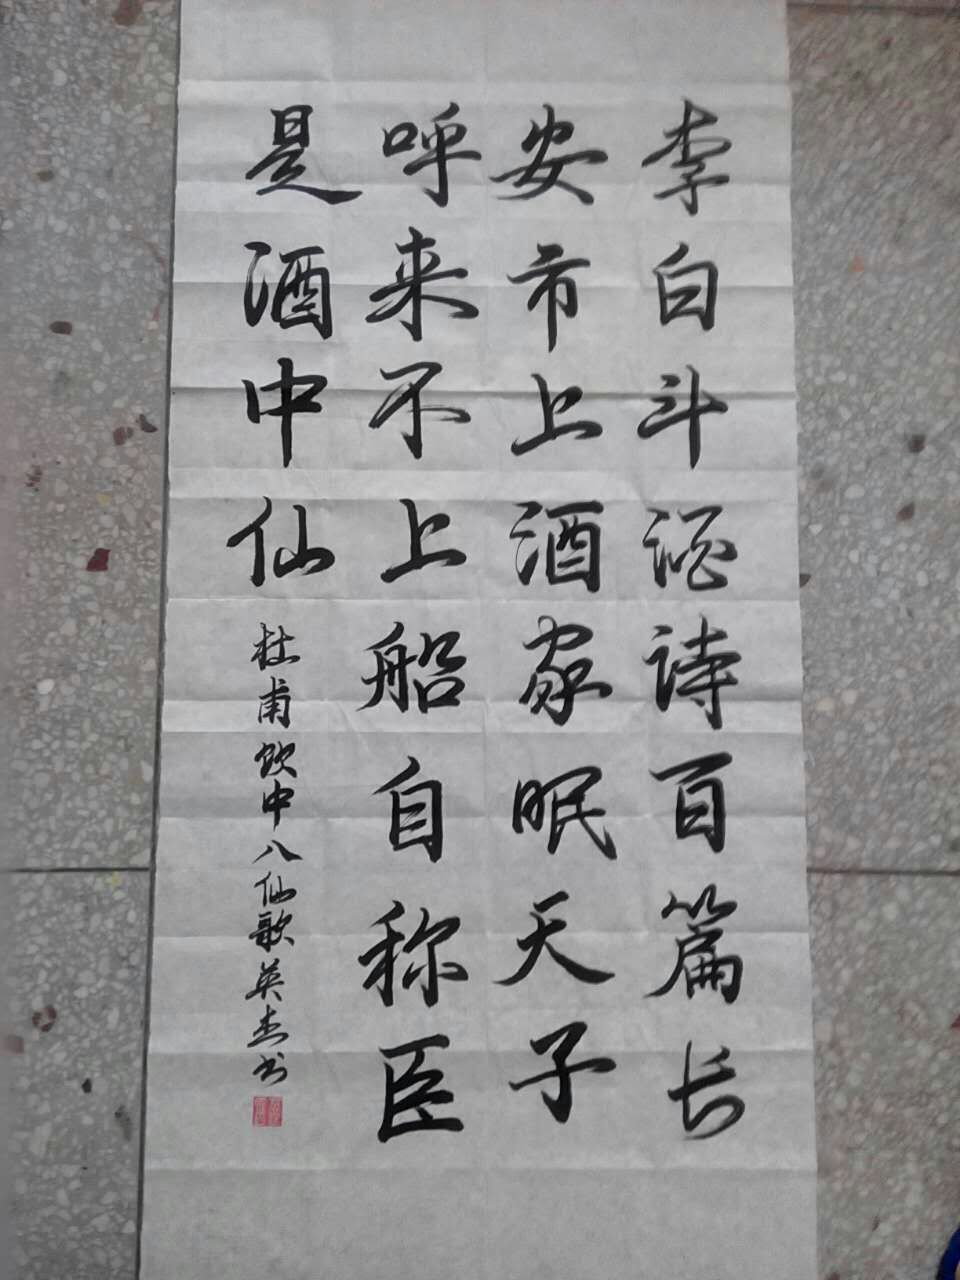 李白斗酒诗百篇长
安市上酒家眠天子
呼来不上船自称臣
是酒中仙
杜甫饮中八仙歌英杰书